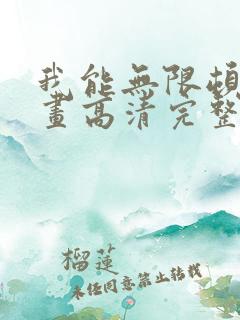 我能無限
畫高清完整
榴蓮
未經同意禁止轉載